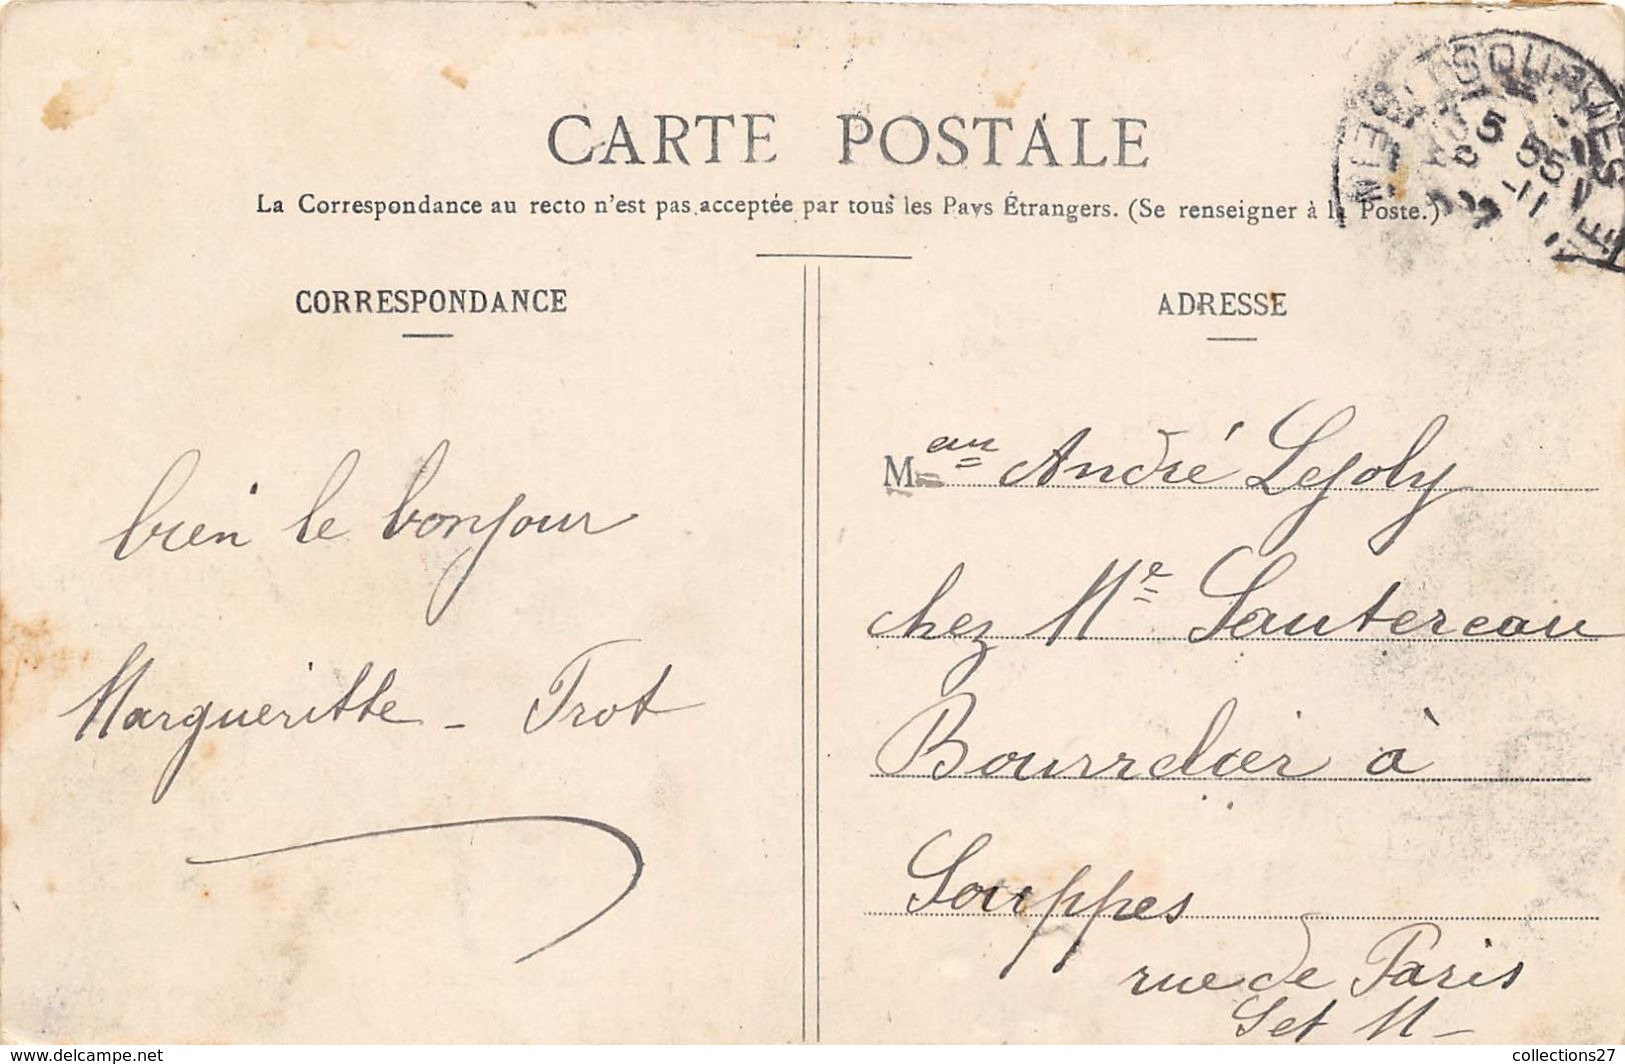 CARTE POSTALE
La Correspondance au recto n'est pas acceptée par tous les Pays Étrangers. (Se renseigner à la Poste.)
CORRESPONDANCE
bien le bonjour
Margueritte - Trot
ADRESSE
M
André Lejoly
chez Mr Sautereau
Bourrelier à
Souppes
rue de Paris
S et M -
5 55
-11
www.delcampe.net
collections27